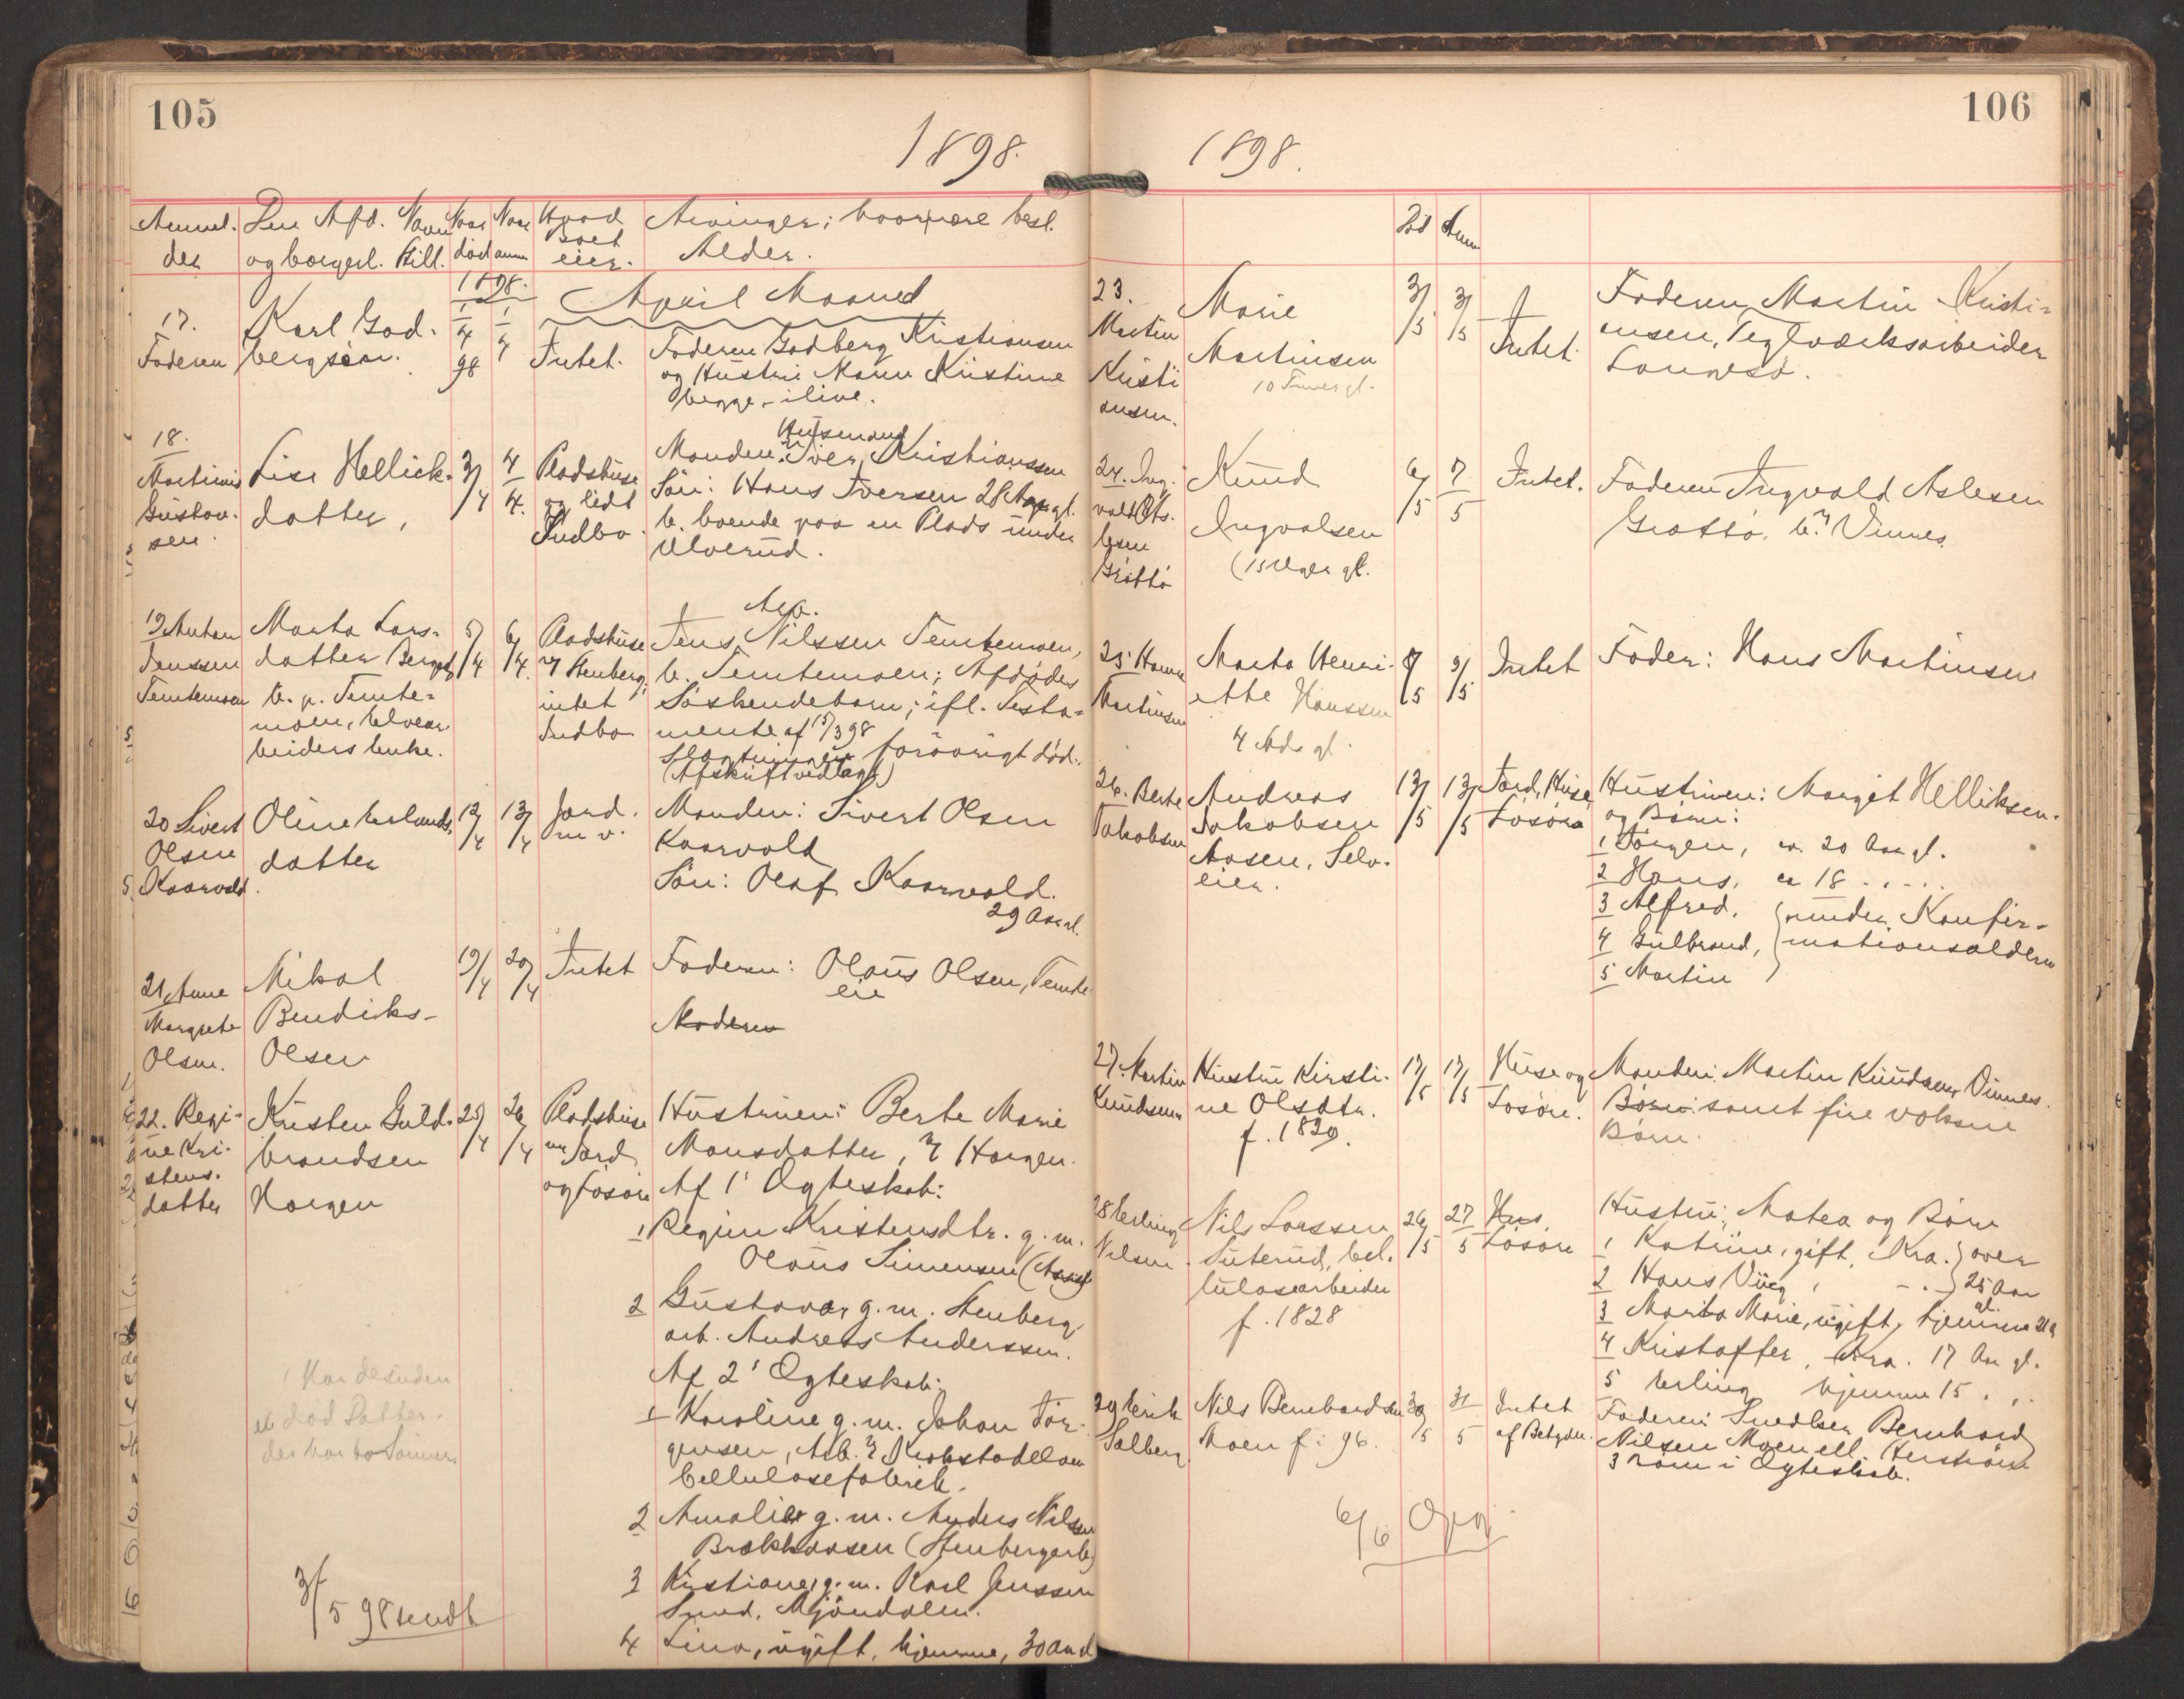 105
1898.
Anmel.
der
Den Afd. Navn
og borgerl. Still.
Naar
død
Naar
anm
Hvad
Boet
eier.
Arvinger; hvor
Alder.
1898.
April Maaned
17.
Faderen
Karl God-
bergsøn.
1
4
98
1
4
Intet.
Faderen Godberg Kristiansen
og Hustru Maren Kristine
begge ilive.
18.
Martinius
Gustav-
sen.
Lise Hellick-
datter,
3/4
4
4.
Pladshuse
og lidt
Indbo.
Husmand
Manden: Iver Kristianssen
Søn: Hans Iversen 28 Aar gl.
b. boende paa en Plads under
Ulverud.
19 Anton
Jenssen
Temtemoen
Marta Lars-
datter Berget
b. p. Temte-
moen, Elvear-
beiders Enke.
5/4
6/4.
Pladshuse
u/ Stenberg;
intet
Indbo
Arb.
Jens Nilssen Temtemoen,
b. Temtemoen; Afdødes
Søskendebarn; ifl. Testa-
mente af 15/3 98
forøvrigt død.
(Afskrift vedlagt)
20 Sivert
Olsen
Kaarvald.
Oline Erlands-
datter
12/4
13/4
Jord.
m v.
Manden: Sivert Olsen
Kaarvald
Søn: Olaf Kaarvald.
29 Aar gl.
21, Anne
Margrete
Olsen.
Mikal
Bendiks-
Olsen
19/4
20/4
Intet
Faderen: Olaus Olsen, Temte
eie
Moderen
22. Regi-
ne Kri-
stens-
datter
Kristen Guld-
brandsen
Horgen
25/4
26/4
Pladshuse
m Jord
og Løsøre
Hustruen: Berte Marie
Monsdatter, u/ Horgen.
Af 1' Ægteskab:
1 Regine Kristensdtr. g. m.
Olaus Simensen
2 Gustava, g. m. Stenberg
arb. Andreas Anderssen.
Af 2' Ægteskab:
1 Karoline g. m. Johan Jør-
gensen, Arb. v/ Krokstadelven
Cellulosefabrik.
2 Amalie g. m. Anders Nilsen
Brækkaasen (Stenbergarb)
3 Kristiane, g. m. Karl Jenssen
Smed, Mjøndalen.
4 Lina, ugift, hjemme, 30 Aar gl
Har desuden
en død Datter.
der har to Sønner
3/5 98 sendt
106
1898.
Død
Anm
23.
Martin
Kristi
ansen.
Marie
Martinsen
10 Timer gl.
3/5
3/5
Intet.
Faderen Martin Kristi-
ansen, Teglværksarbeider
Langesø.
24. Ing-
vald As-
lesen
Grøttø
Knud
Ingvalsen
(15 Uger gl.
6/5
7
5
Intet.
Faderen Ingvald Aslesen
Grøttø, b. u/ Vinnes.
25. Hans
Martinsen
Marta Henri-
ette Hanssen
4 Mdr gl.
8/5
9/5
Intet
Fader: Hans Martinsen
26. Berte
Jakobsen
Andreas
Jakobsen
Aasen, Selv-
eier.
13/5
13/5
Jord, Huse
Løsøre
Hustruen: Margit Helliksen.
og Børn:
1 Jørgen, ca. 20 Aar gl.
2 Hans, ca 18 . . . .
3 Alfred,
4 Gulbrand,
5 Martin
under Konfir-
mationsalderen
27. Martin
Knudsen
Hustru Kirsti-
ne Olsdtr.
f. 1829.
17/5
17/5
Huse og
Løsøre.
Manden: Martin Knudsen, Vinnes.
Børn: samt fire voksne
Børn.
28 Erling
Nilsen.
Nils Larssen
Suterud, Cel-
lulosearbeider
f. 1828
26/5
27
5
Hus,
Løsøre
Hustru: Matea og Børn
1 Katrine, gift, Kra.
2 Hans Viig
over
25 Aar
gl.
3 Marta Marie, ugift, hjemme 21
4 Kristoffer, Kra. 17 Aar gl.
5 Erling hjemme 15 . .
29 Erik
Solberg
Nils Bernhardsen
Moen f. 96.
30/5
31
5
Intet
af Betydn.
Faderen: Snedker Bernhard
Nilsen Moen ell.
3 Børn i Ægteskab.
6/6